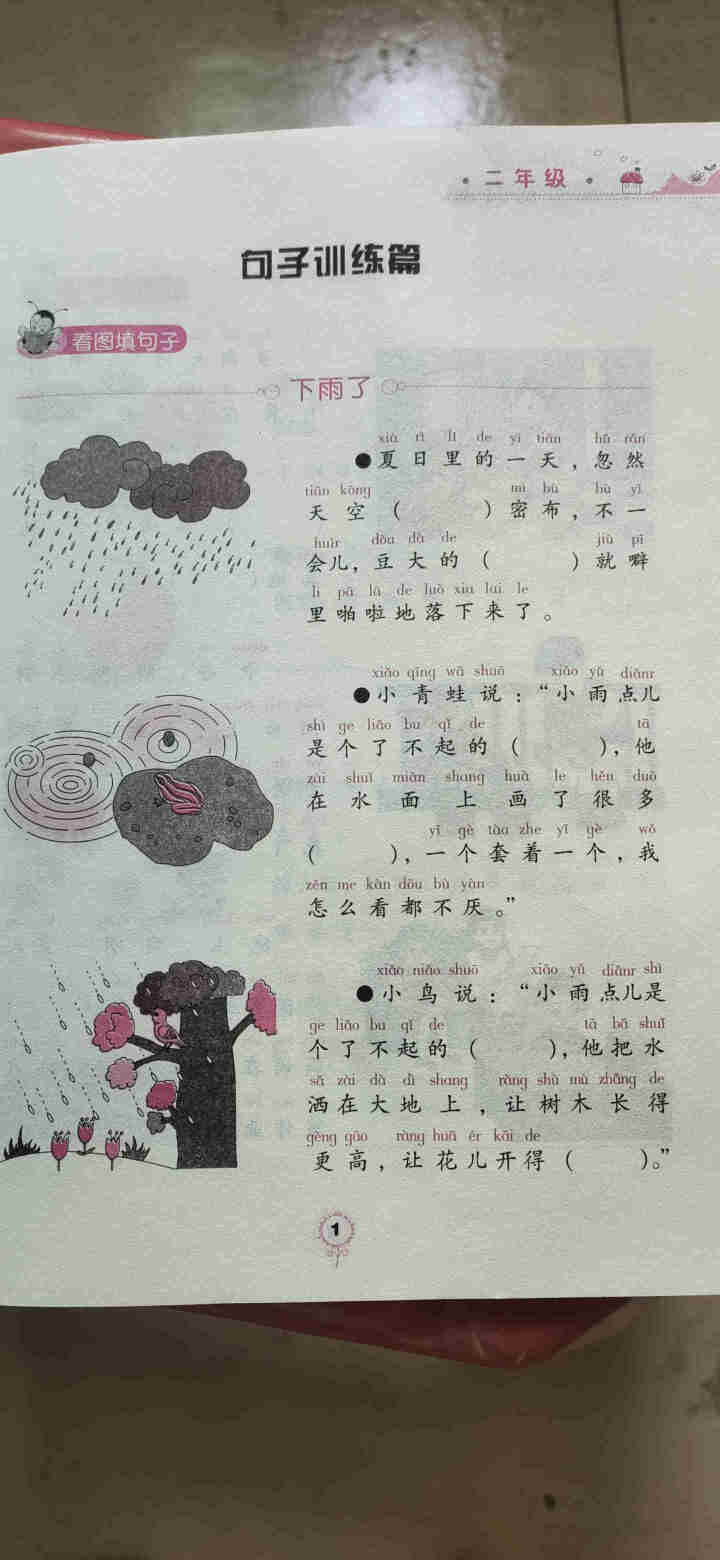 二年级
句子训练篇
看图填句子
下雨了
xià rì lǐ de yì tiān hū rán
●夏日里的一天，忽然
tiān kōng mì bù bù yī
天空（ ）密布，不一
huìr dòu dà de jiù pī
会儿，豆大的（ ）就噼
lǐ pā lā de luò xià lai le
里啪啦地落下来了。
xiǎo qīng wā shuō xiǎo yǔ diǎnr
●小青蛙说：“小雨点儿
shì ge liǎo bu qǐ de tā
是个了不起的（ ），他
zài shuǐ miàn shang huà le hěn duō
在水面上画了很多
yī gè tào zhe yī gè wǒ
（ ），一个套着一个，我
zěn me kàn dōu bù yàn
怎么看都不厌。”
xiǎo niǎo shuō xiǎo yǔ diǎnr shì
●小鸟说：“小雨点儿是
ge liǎo bu qǐ de tā bǎ shuǐ
个了不起的（ ），他把水
sǎ zài dà dì shang ràng shù mù zhǎng de
洒在大地上，让树木长得
gèng gāo ràng huā ér kāi de
更高，让花儿开得（ ）。”
1